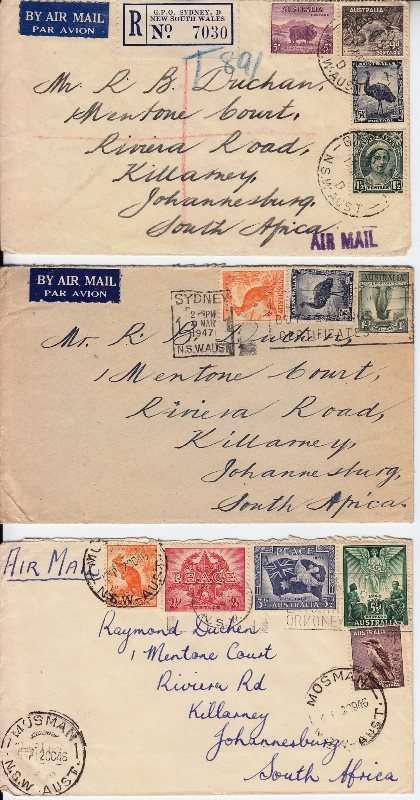 BY AIR MAIL
PAR AVION
R
G.P.O. SYDNEY, D
NEW SOUTH WALES
No 7030
T891
AUSTRALIA
AUSTRALIA
N.S.W. AUST
Mr. R B. Duchen,
Mentone Court,
Riviera Road,
Killarney,
Johannesburg,
South Africa.
AIR MAIL
BY AIR MAIL
PAR AVION
SYDNEY
2-9PM
MAR
1947
N.S.W. AUST
CERTIFICATES
AUSTRALIA
Mr. R B. Duchen,
1 Mentone Court,
Riviera Road,
Killarney,
Johannesburg,
South Africa.
AIR MAIL
N.S.W. AUST
PEACE
PEACE
AUSTRALIA
AUSTRALIA
Raymond Duchen
1 Mentone Court
Riviera Rd
Killarney
Johannesburg
South Africa
MOSMAN
MOSMAN
N.S.W. AUST.